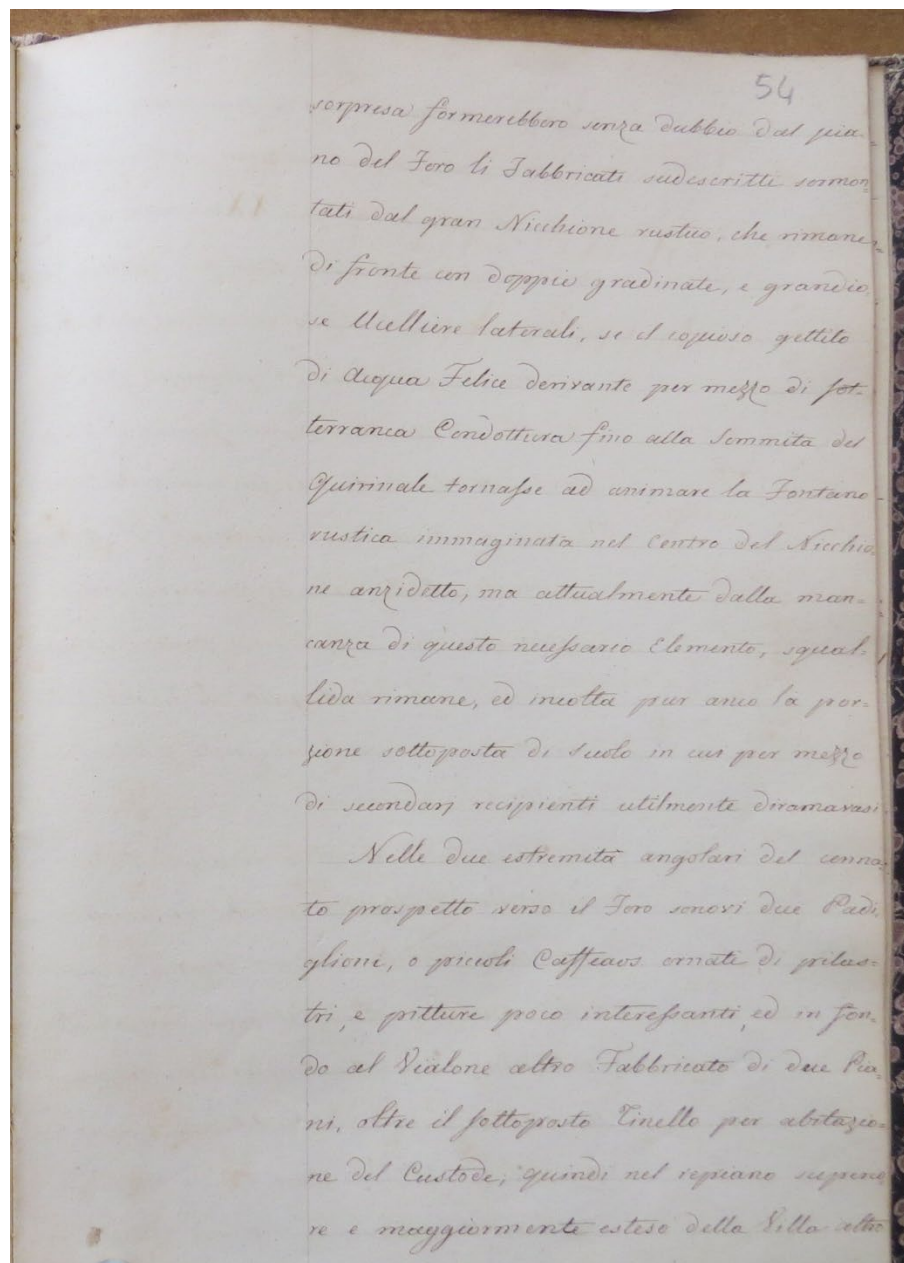 54
sorpresa formerebbero senza dubbio dal pia-
no del Foro li Fabbricati sudescritti sormon-
tati dal gran Nicchione rustico, che rimane
di fronte con doppie gradinate, e grandio
se Uccelliere laterali, se il copioso gettito
di Acqua Felice derivante per mezzo di sot-
terranea Condottura fino alla Sommità del
Quirinale tornasse ad animare la Fontana
rustica immaginata nel Centro del Nicchio
ne anzidetto, ma attualmente dalla man=
canza di questo necessario Elemento, squal-
lida rimane, ed incolta pur anco la por=
zione sottoposta di Suolo in cui per mezzo
di secondarj recipienti utilmente diramavasi
Nelle due estremità angolari del cenna=
to prospetto verso il Foro sonovi due Padi,
glioni, o piccoli Caffeaos ornati di pilas=
tri, e pitture poco interessanti, ed in fon=
do al Vialone altro Fabbricato di due Pia=
ni, oltre il sottoposto Tinello per abitazio=
ne del Custode, quindi nel repiano superio
re e maggiormente esteso della Villa altro